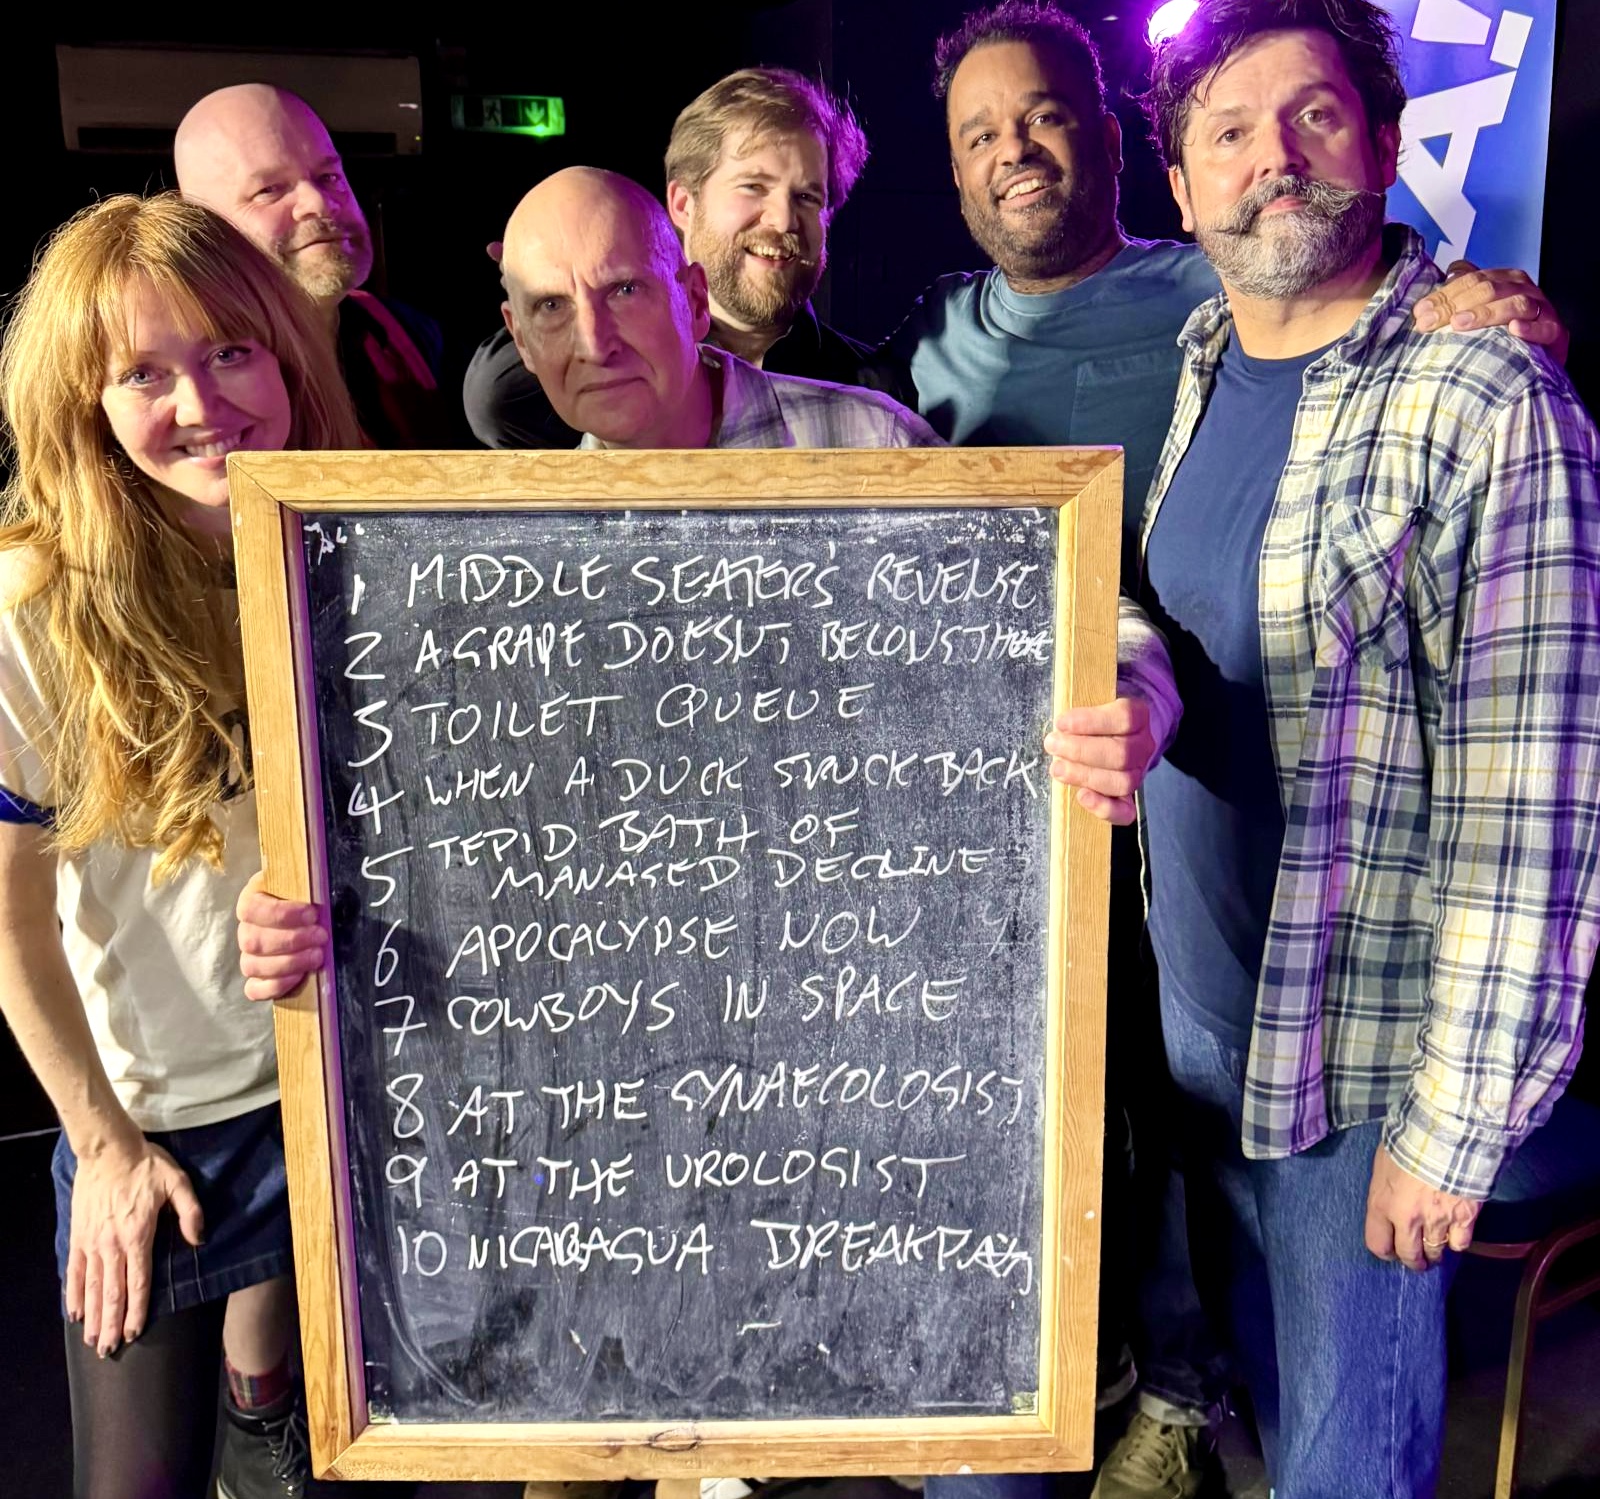 A!
1 MIDDLE SEATER'S REVENGE
2 A GRAPE DOESN'T BELONG THERE
3 TOILET QUEUE
4 WHEN A DUCK STRUCK BACK
5 TEPID BATH OF
MANAGED DECLINE
6 APOCALYPSE NOW
7 COWBOYS IN SPACE
8 AT THE GYNAECOLOGIST
9 AT THE UROLOGIST
10 NICARAGUA